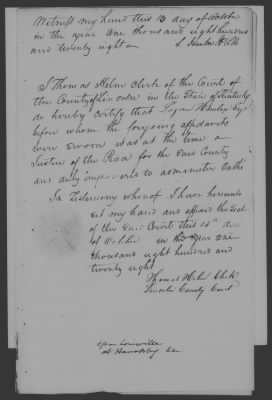 Witness my hand this 13 day of October
in the year one thousand eight hundred
and twenty eight
I Thomas Helm clerk of the Court of
the County of Lincoln in the State of Kentucky
do hereby certify that Logan Hunton Esqr
before whom the foregoing affidavits
were sworn was at the time a
Justice of the Peace for the said County
and duly empowered to administer oaths
In Testimony whereof I have hereunto
set my hand and affixed the seal
of the said Court this 15th day
of October in the year one
thousand eight hundred and
twenty eight
Thomas Helm Clerk
Lincoln County Court
Louisville
at Harrodsburg